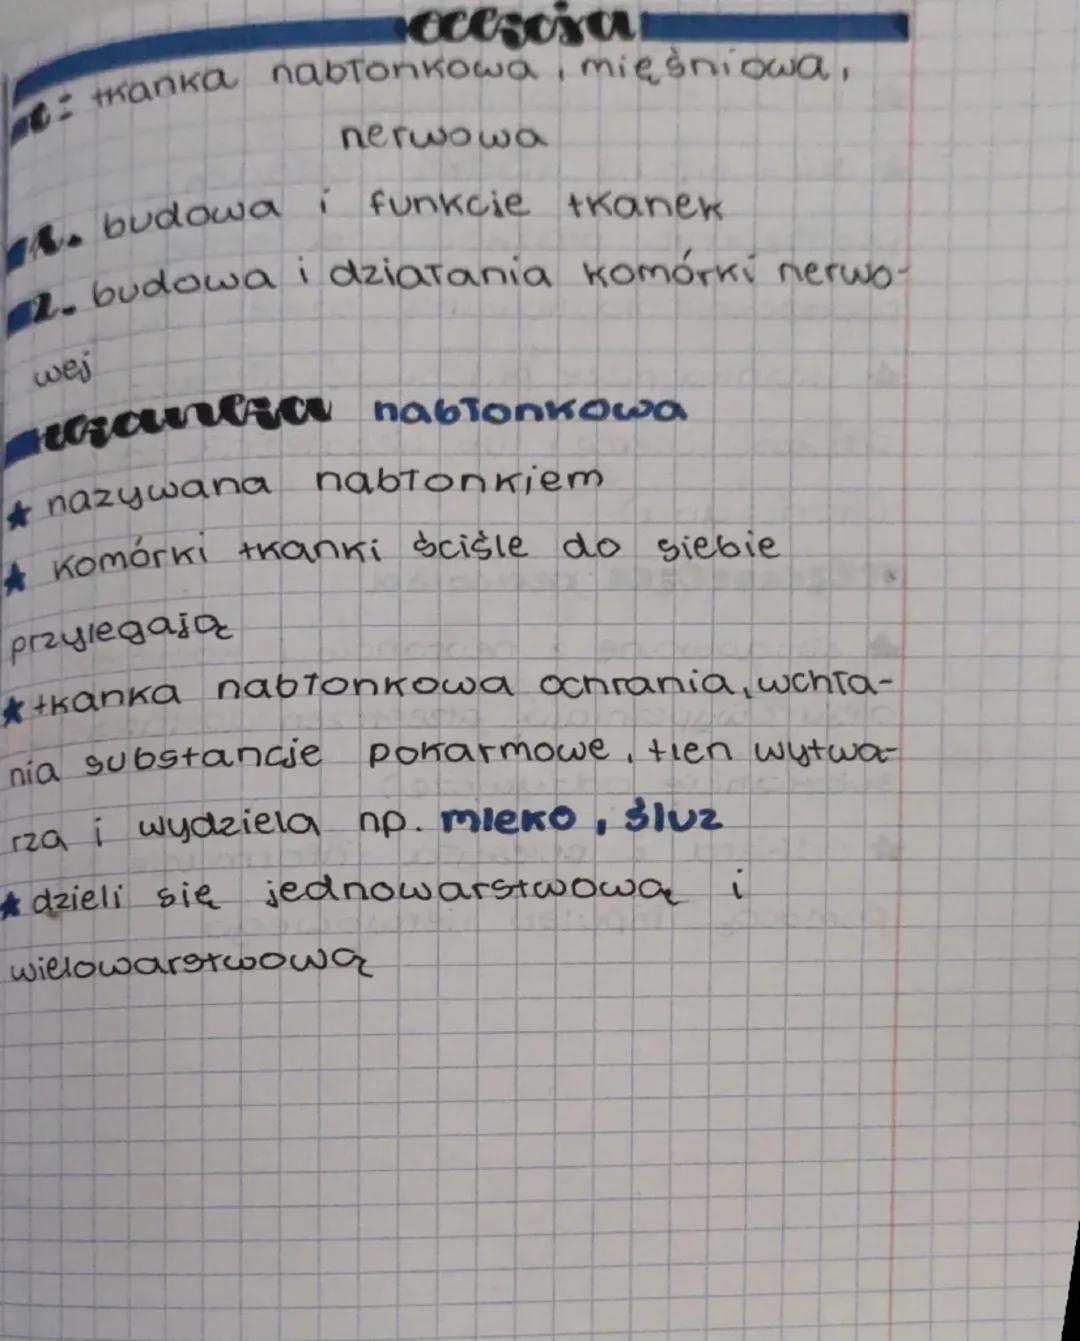 tkanka nabłonkowa, mięśniowa,
nerwowa
1. budowa i funkcje tkanek
2. budowa i działania komórki nerwo-
wej
nabłonkowa
★ nazywana nabłonkiem
★ komórki tkanki ściśle do siebie
przylegają
★ tkanka nabłonkowa ochrania, wchła-
nia substancje pokarmowe, tlen wytwa-
rza i wydziela np. mleko, śluz
★ dzieli się jednowarstwową i
wielowarstwową